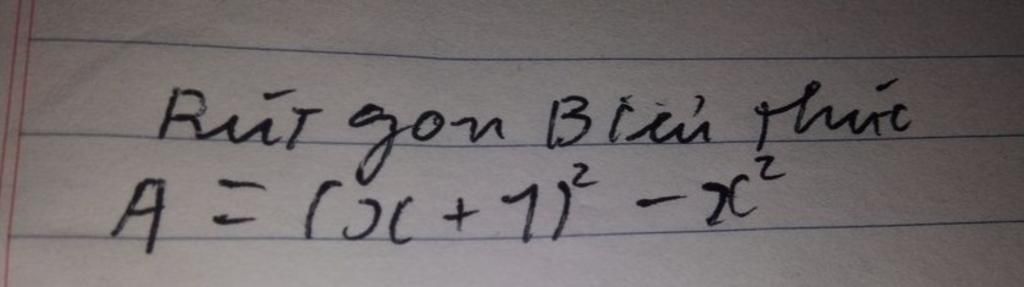 Rút gon Biểu thức
A = (x + 1)² - x²